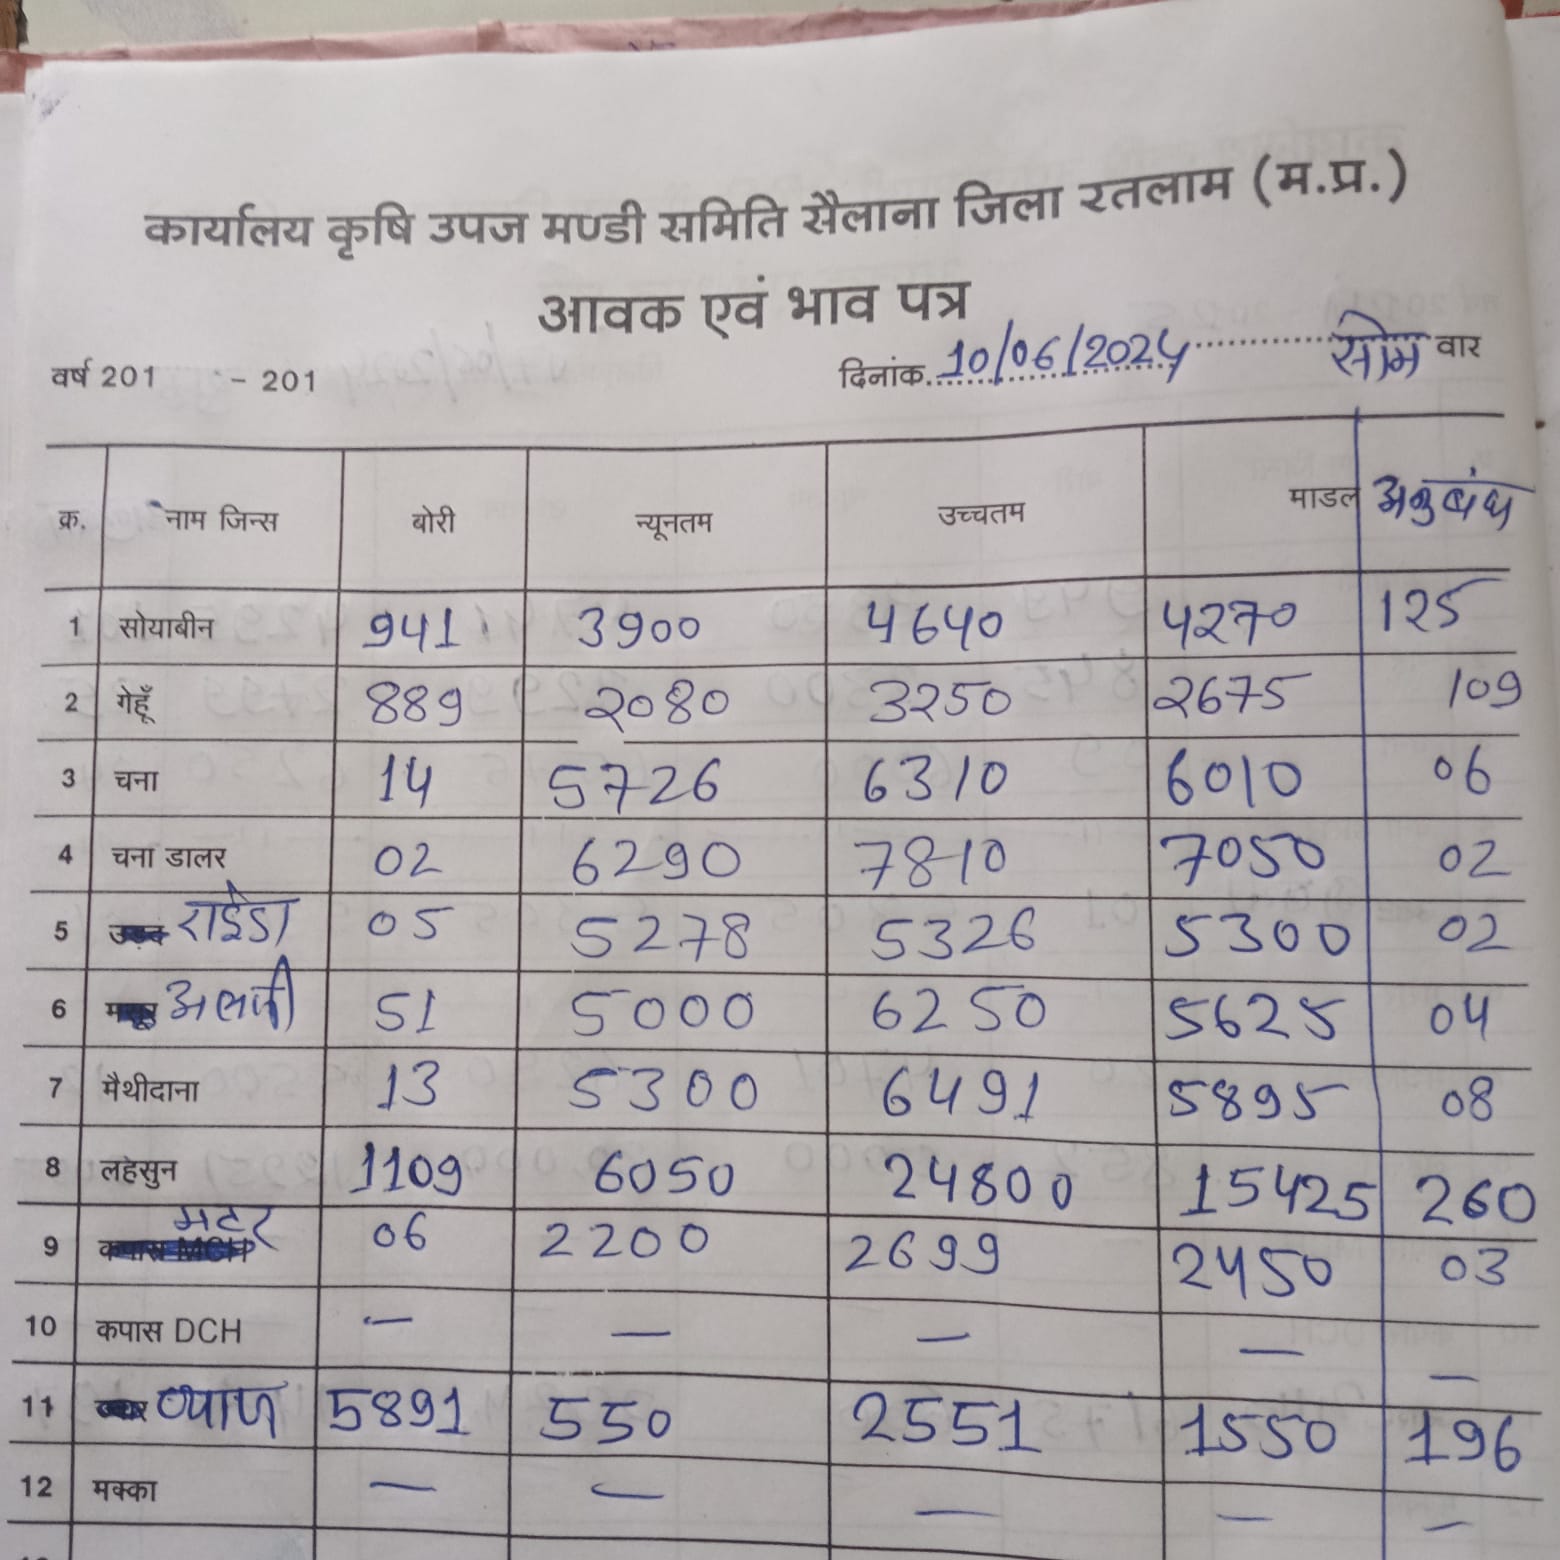 कार्यालय कृषि उपज मण्डी समिति सैलाना जिला रतलाम (म.प्र.)
आवक एवं भाव पत्र
वर्ष 201 - 201 दिनांक 10/06/2024 सोम वार
क्र. नाम जिन्स बोरी न्यूनतम उच्चतम माडल अनुबंध
1 सोयाबीन 941 3900 4640 4270 125
2 गेहूँ 889 2080 3250 2675 109
3 चना 14 5726 6310 6010 06
4 चना डालर 02 6290 7810 7050 02
5 राईडा 05 5278 5326 5300 02
6 अलसी 51 5000 6250 5625 04
7 मैथीदाना 13 5300 6491 5895 08
8 लहसुन 1109 6050 24800 15425 260
9 मटर 06 2200 2699 2450 03
10 कपास DCH — — — — —
11 प्याज 5891 550 2551 1550 196
12 मक्का — — — — —